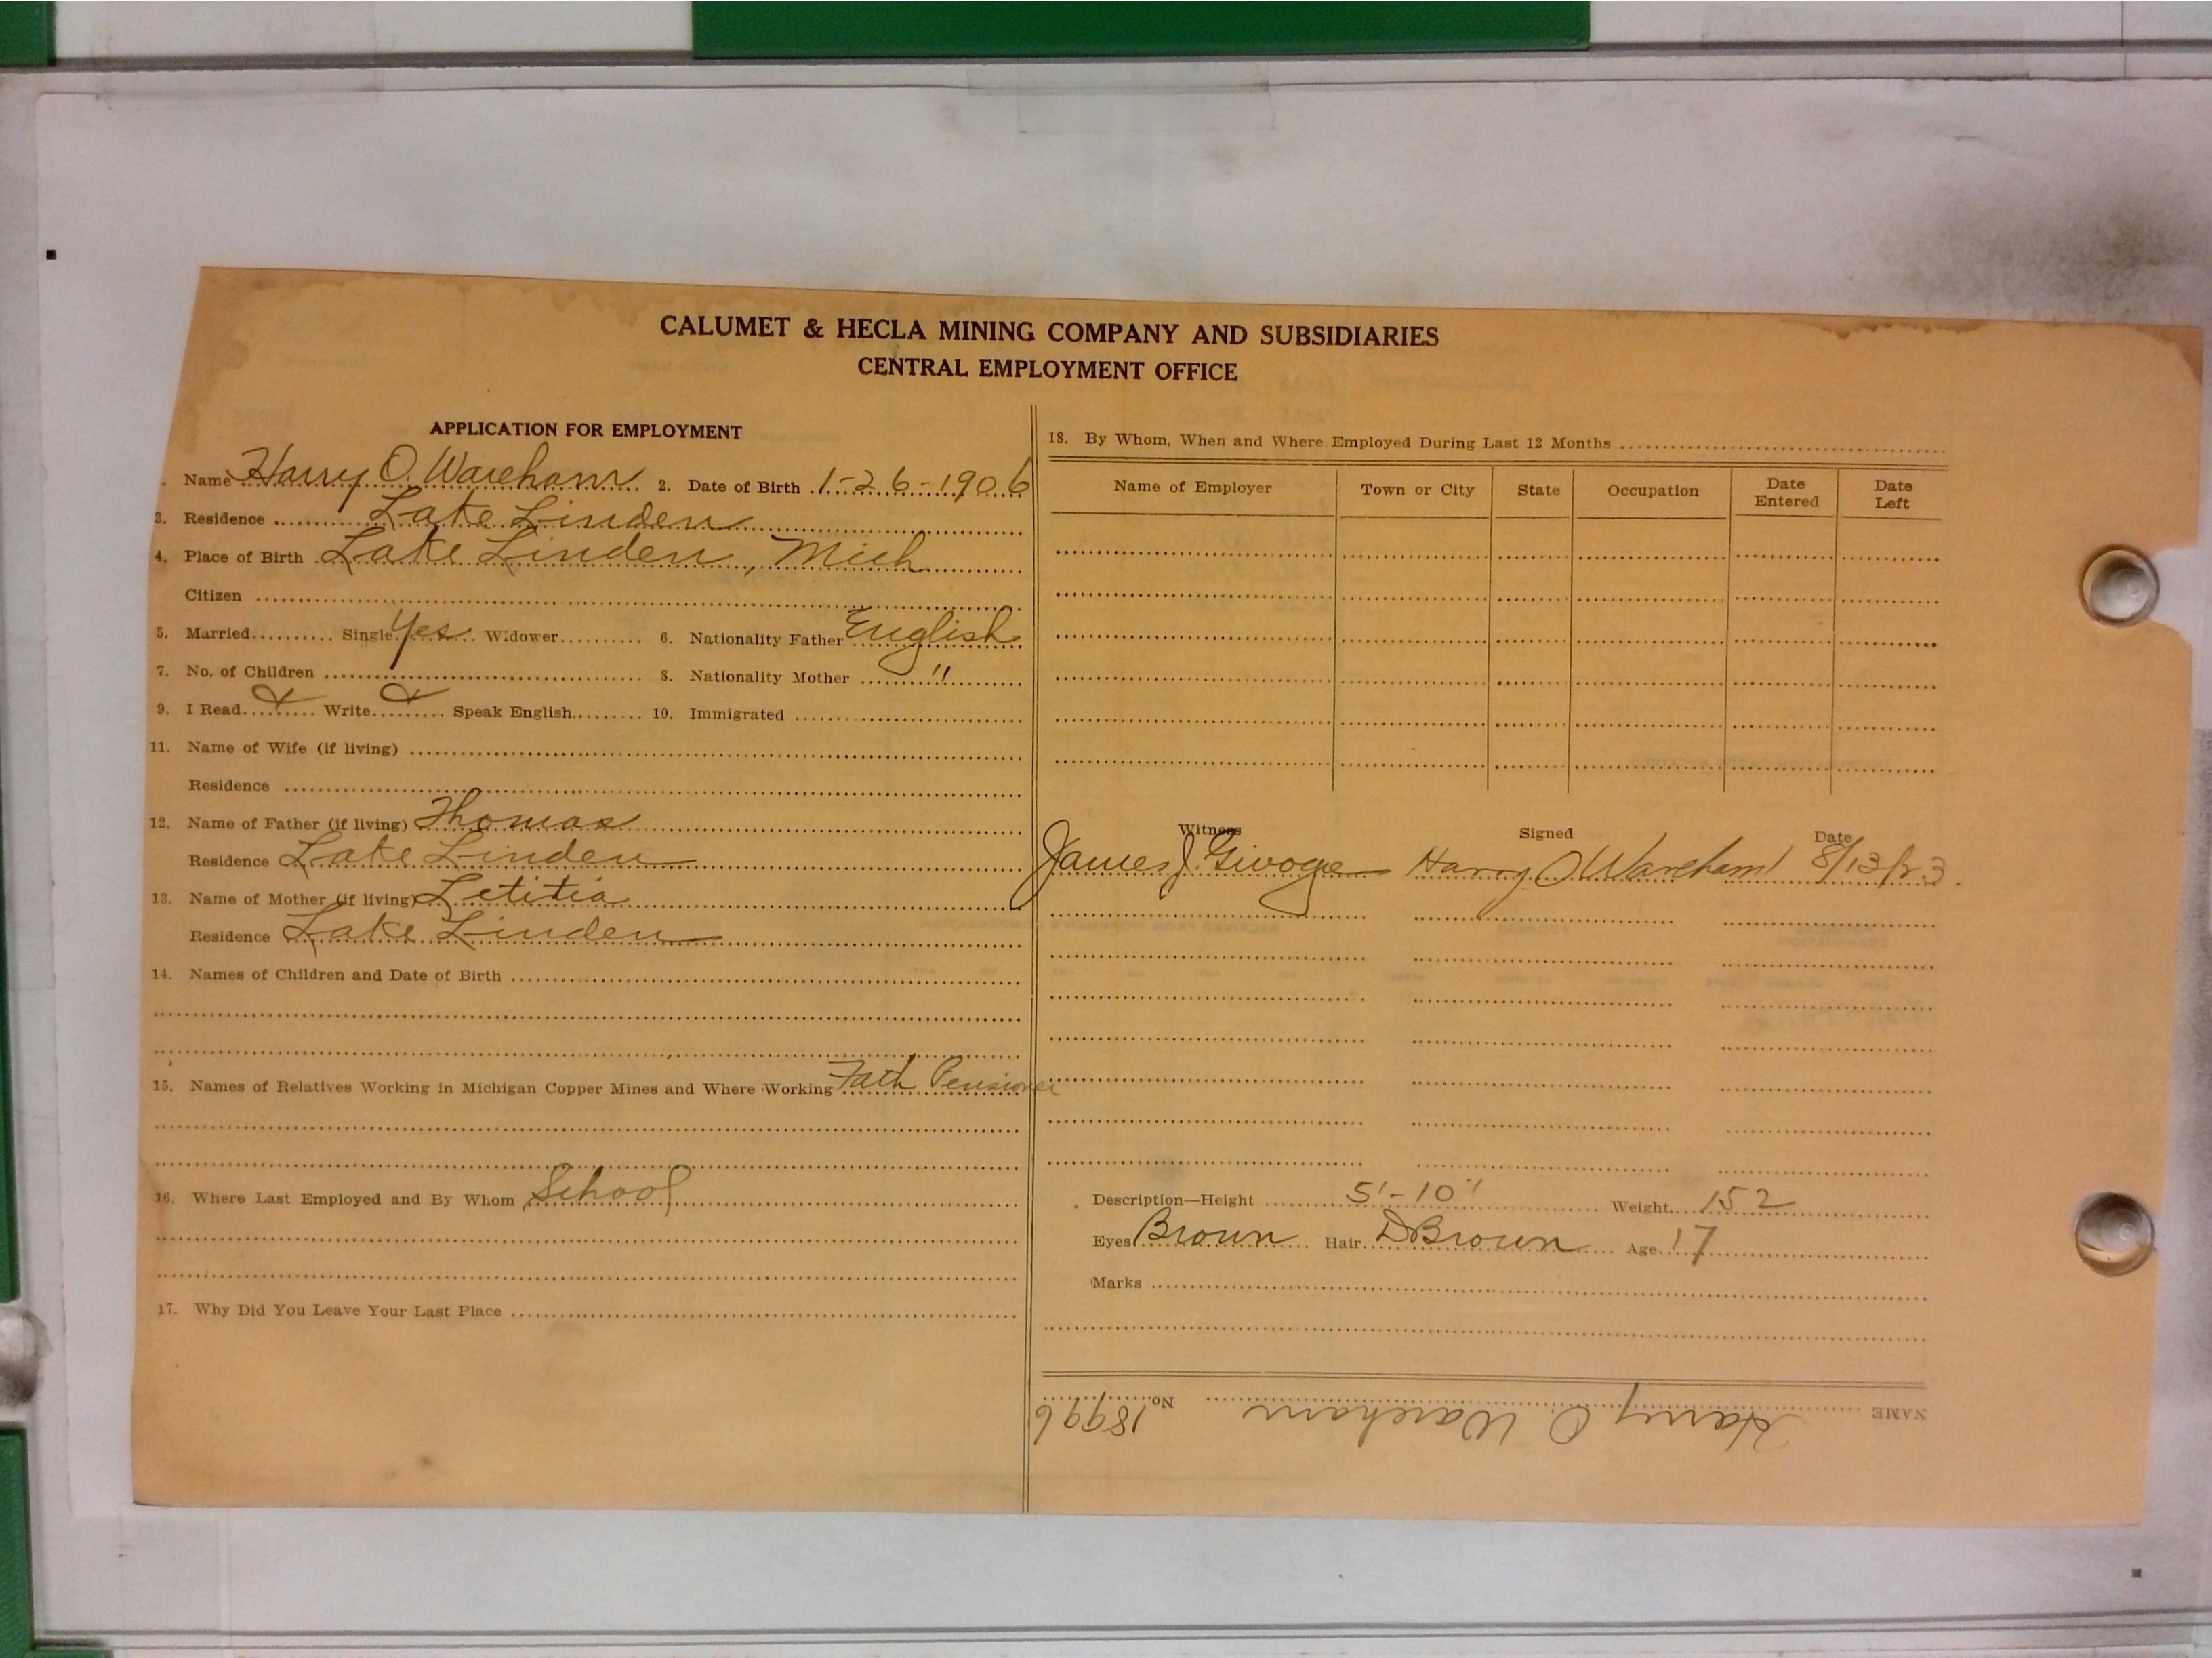 CALUMET & HECLA MINING COMPANY AND SUBSIDIARIES
CENTRAL EMPLOYMENT OFFICE
APPLICATION FOR EMPLOYMENT
Name Harry O. Wareham 2. Date of Birth 1-26-1906
3. Residence Lake Linden
4. Place of Birth Lake Linden, Mich
Citizen
5. Married Single Yes Widower 6. Nationality Father English
7. No. of Children 8. Nationality Mother "
9. I Read Write Speak English 10. Immigrated
11. Name of Wife (if living)
Residence
12. Name of Father (if living) Thomas
Residence Lake Linden
13. Name of Mother (if living) Letitia
Residence Lake Linden
14. Names of Children and Date of Birth
15. Names of Relatives Working in Michigan Copper Mines and Where Working Fath Pensioner
16. Where Last Employed and By Whom School
17. Why Did You Leave Your Last Place
18. By Whom, When and Where Employed During Last 12 Months
Name of Employer Town or City State Occupation Date Entered Date Left
Witness Signed Date
James J. Harry O Wareham 8/13/23.
Description—Height 5'-10" Weight 152
Eyes Brown Hair D Brown Age 17
Marks
NAME Harry O. Wareham No. 18996